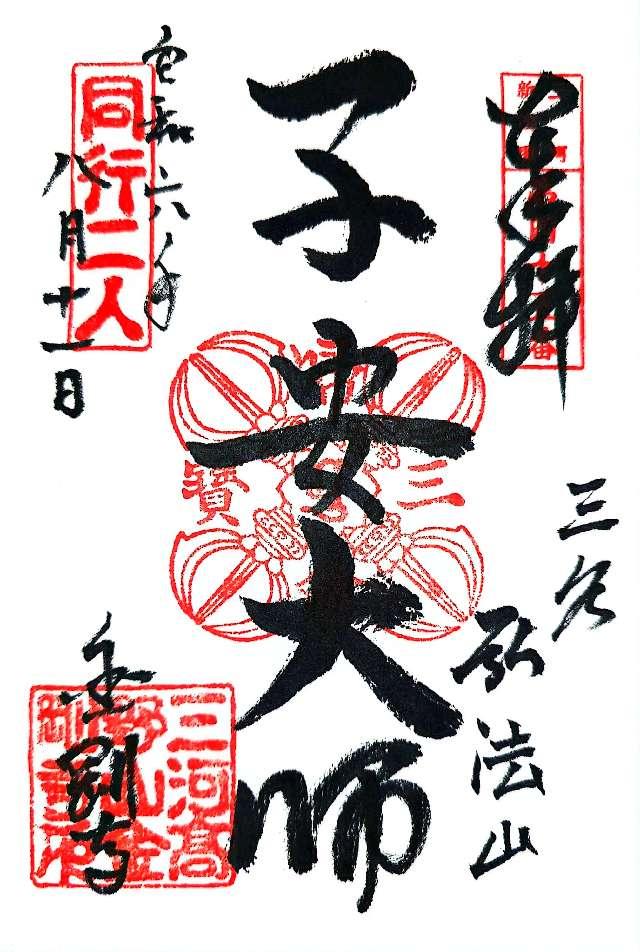 奉拝
三谷
弘法山
子安大師
金剛寺
令和六年
八月十一日
同行二人
三
寶
三河高
野山金